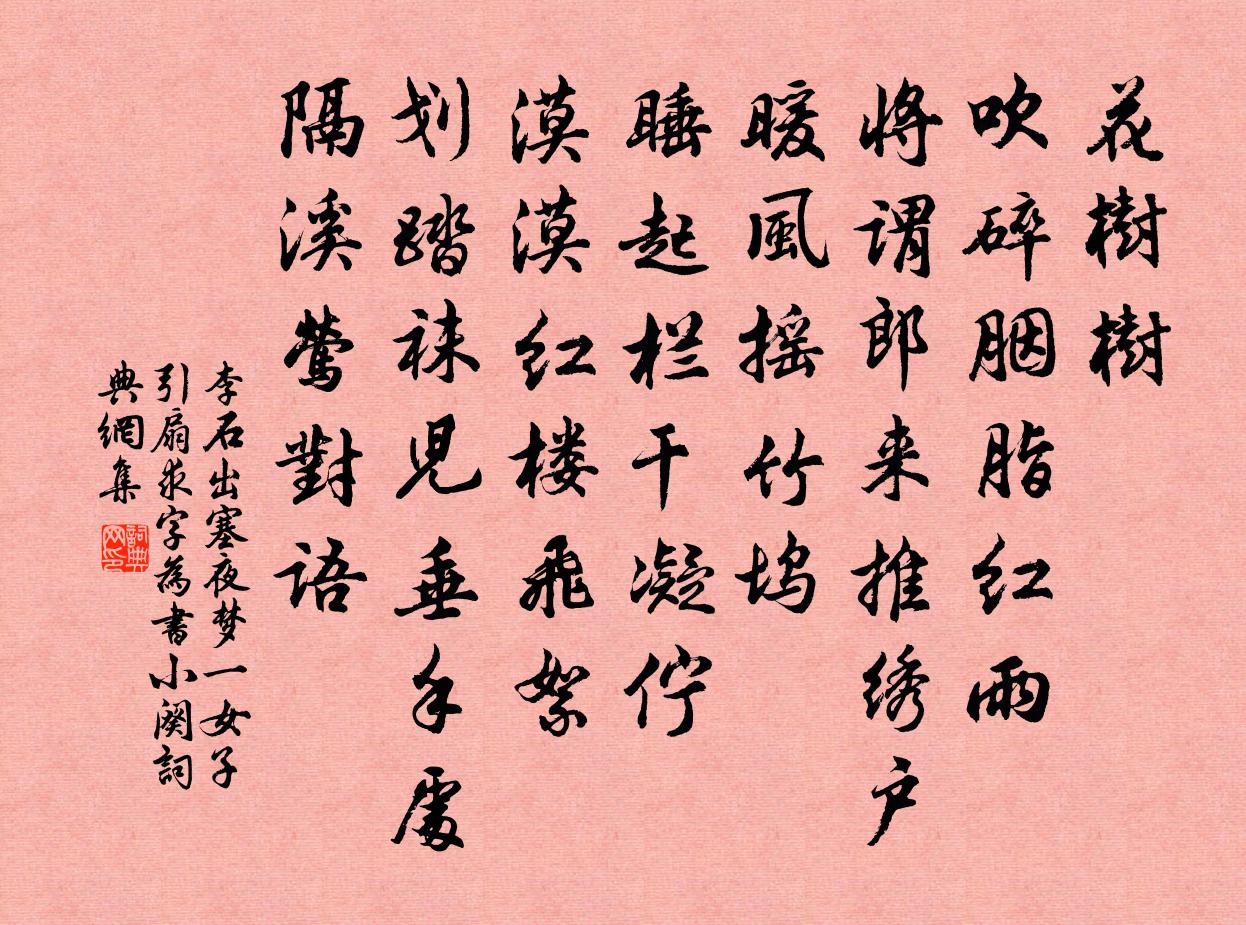 花樹樹
吹碎胭脂紅雨
將謂郎来推绣户
暖風摇竹坞
睡起栏干凝佇
漠漠紅楼飛絮
刬踏袜兒垂手處
隔溪鶯對語
李石出塞夜梦一女子
引扇求字為書小阕詞
典網集
詞典网印